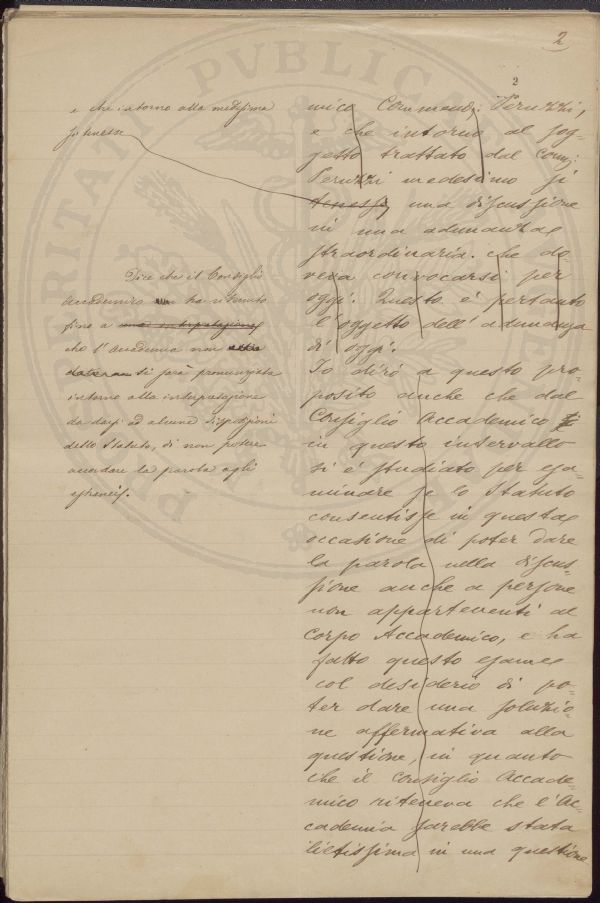 2
2
e che intorno alla medesima
si tenesse
Dice che il Consiglio
Accademico ha ritenuto
fino a una interpretazione
che l'Accademia non
si sarà pronunziata
intorno alla interpretazione
da darsi ad alcune disposizioni
dello Statuto, di non potere
accordare la parola agli
estranei.
mico Commend: Peruzzi,
e che intorno al sog-
getto trattato dal Com:
Peruzzi medesimo si
tenesse, una discussione
in una adunanza
straordinaria. che do
veva convocarsi per
oggi. Questo è pertanto
l'oggetto dell'adunanza
di oggi.
Io dirò a questo pro-
posito anche che dal
Consiglio Accademico
in questo intervallo
si è studiato per esa-
minare se lo Statuto
consentisse in questa
occasione di poter dare
la parola nella discus-
sione anche a persone
non appartenenti al
Corpo Accademico, e ha
fatto questo esame
col desiderio di po-
ter dare una soluzio-
ne affermativa alla
questione, in quanto
che il Consiglio Accade-
mico riteneva che l'Ac-
cademia sarebbe stata
lietissima in una questione